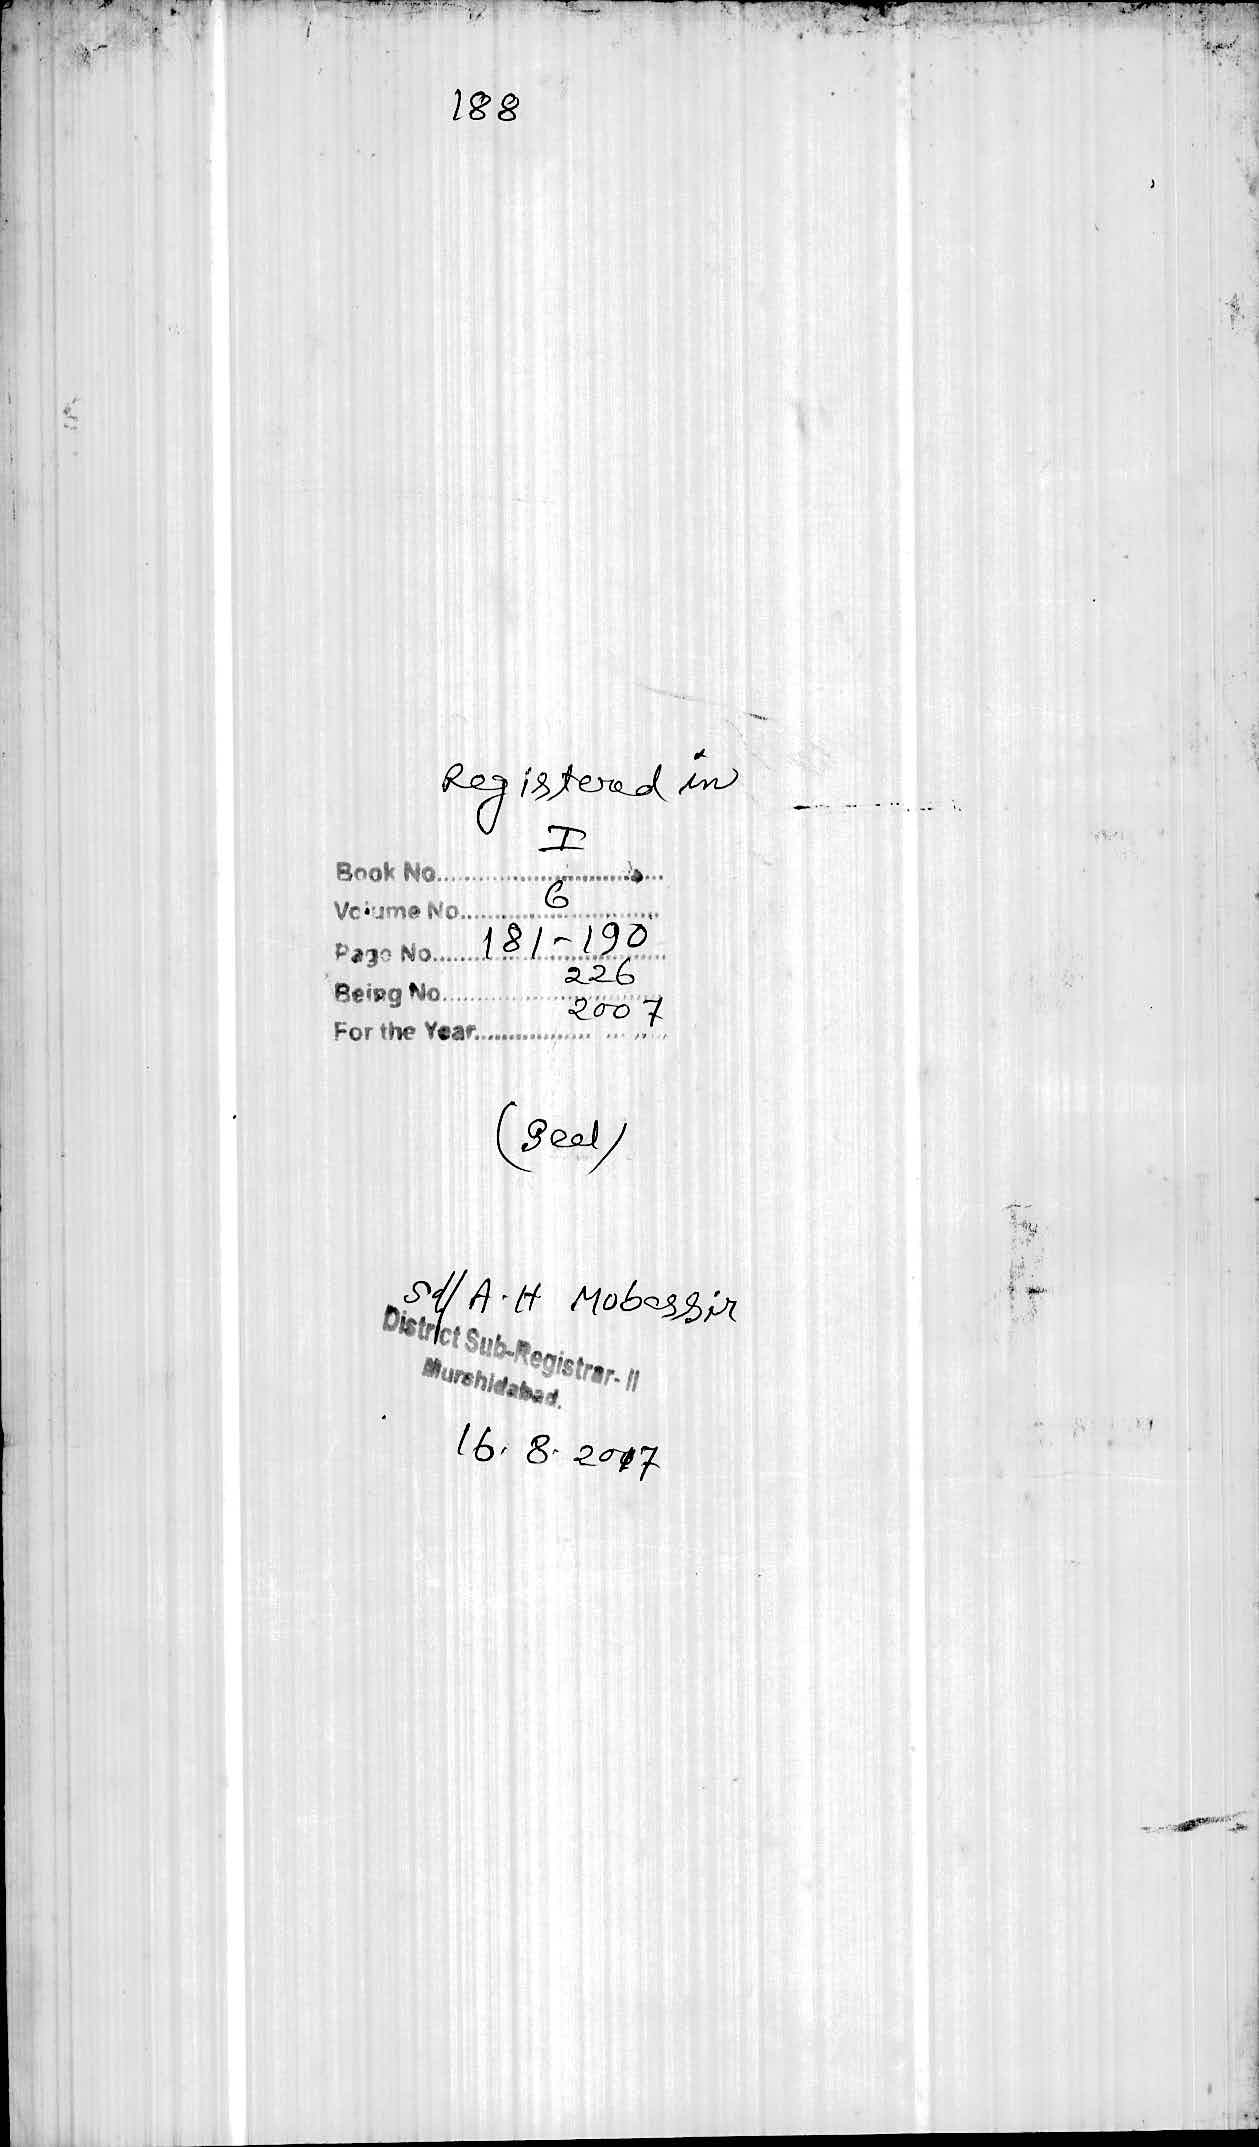 188
Registered in
Book No. I
Volume No. 6
Page No. 181-190
Being No. 226
For the Year 2007
(Seal)
Sd/ A.H Mobassir
District Sub-Registrar-II
Murshidabad.
16.8.2007